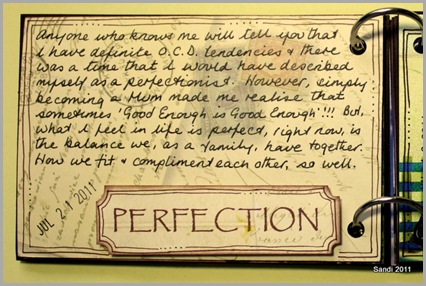 Anyone who knows me will tell you that
I have definite O.C.D. tendencies & there
was a time that I would have described
myself as a perfectionist. However, simply
becoming a Mum made me realise that
sometimes 'Good Enough is Good Enough'!!! But,
what I feel in life is perfect, right now, is
the balance we, as a family, have together.
How we fit & compliment each other, so well.
JUL 21 2011
PERFECTION
Sandi 2011